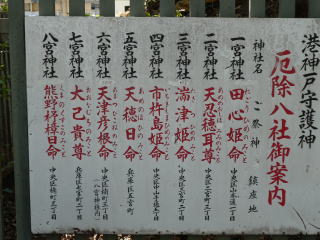 港神戸守護神
厄除八社御案内
神社名 ご祭神 鎮座地
一宮神社 田心姫命 中央区山本通一丁目
二宮神社 天忍穂耳尊 中央区二宮町三丁目
三宮神社 湍津姫命 中央区三宮町二丁目
四宮神社 市杵島姫命 中央区中山手通五丁目
五宮神社 天穂日命 兵庫区五宮町
六宮神社 天津彦根命 中央区楠町三丁目
(八宮神社内)
七宮神社 大己貴命 兵庫区七宮町二丁目
八宮神社 熊野杼樟日命 中央区楠町三丁目